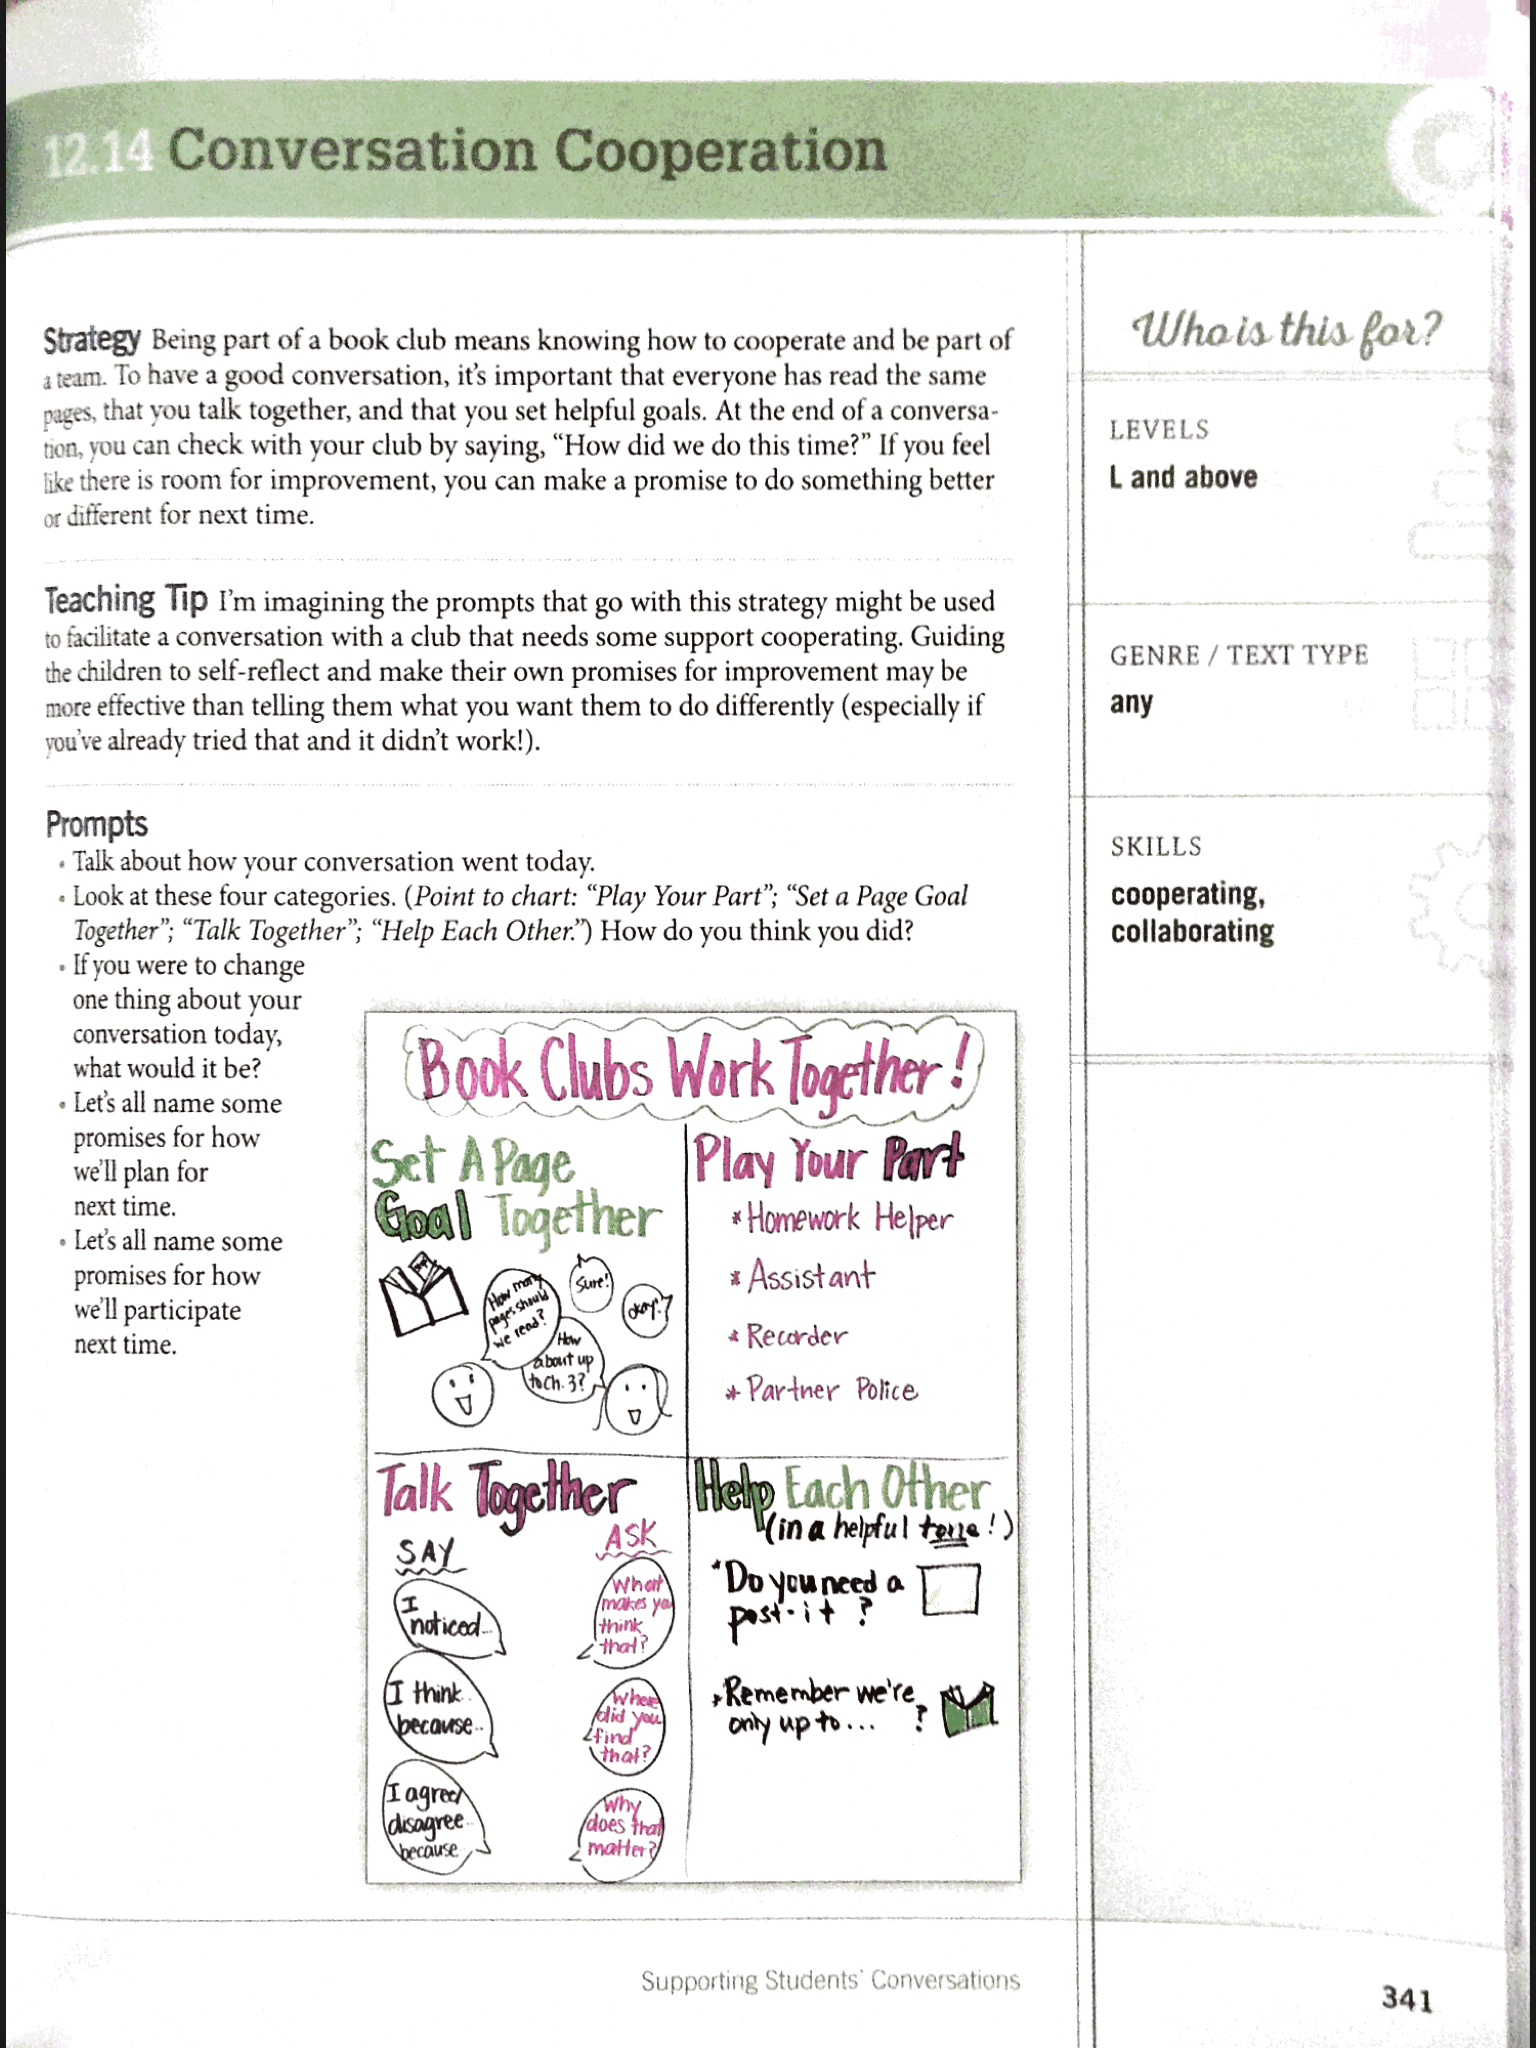 12.14 Conversation Cooperation
Strategy Being part of a book club means knowing how to cooperate and be part of
a team. To have a good conversation, it's important that everyone has read the same
pages, that you talk together, and that you set helpful goals. At the end of a conversa-
tion, you can check with your club by saying, “How did we do this time?” If you feel
like there is room for improvement, you can make a promise to do something better
or different for next time.
Teaching Tip I'm imagining the prompts that go with this strategy might be used
to facilitate a conversation with a club that needs some support cooperating. Guiding
the children to self-reflect and make their own promises for improvement may be
more effective than telling them what you want them to do differently (especially if
you've already tried that and it didn't work!).
Prompts
• Talk about how your conversation went today.
• Look at these four categories. (Point to chart: “Play Your Part”; “Set a Page Goal
Together”; “Talk Together”; “Help Each Other.”) How do you think you did?
• If you were to change
one thing about your
conversation today,
what would it be?
• Let's all name some
promises for how
we'll plan for
next time.
• Let's all name some
promises for how
we'll participate
next time.
Book Clubs Work Together!
Set A Page
Goal Together
How many
pages should
we read?
Sure!
okay!
How
about up
to Ch. 3?
Play Your Part
* Homework Helper
* Assistant
* Recorder
* Partner Police
Talk Together
SAY
I
noticed...
I think..
because..
I agree/
disagree..
because..
ASK
What
makes you
think
that?
Where
did you
find
that?
Why
does that
matter?
Help Each Other
(in a helpful tone!)
* Do you need a
post-it ?
* Remember we're
only up to... ?
Who is this for?
LEVELS
L and above
GENRE / TEXT TYPE
any
SKILLS
cooperating,
collaborating
Supporting Students' Conversations
341